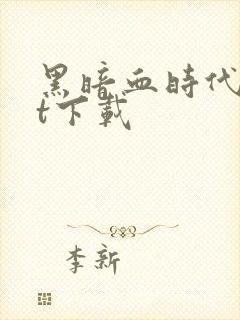 黑暗血時代
t下載
李新